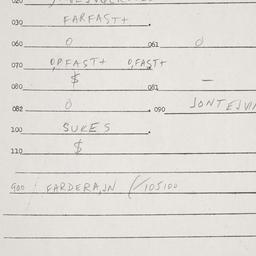 030 FARFAST+ .
060 0 061 0
070 O,P,FAST+ O,FAST+
080 $ 081 —
082 0 . 090
100 SUKES .
110 $
900 FARDERA,JN (/105100